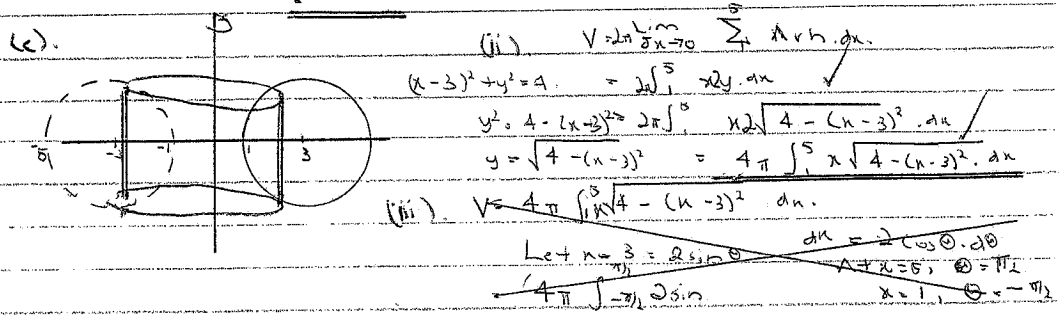 (c).
y
-5 -1 1 3
(ii) V = 2π Lim δx→0 Σ 5 1 πrh.dx.
(x-3)² + y² = 4. = 2∫₁⁵ x2y.dx
y² = 4 - (x-3)² = 2π∫₁⁵ x2√4 - (x-3)² .dx
y = √4 - (x-3)² = 4π ∫₁⁵ x√4 - (x-3)² . dx
(iii). V = 4π ∫₁⁵ x√4 - (x-3)² dx.
Let x-3 = 2sinθ dx = 2cosθ.dθ
4π ∫ -π/2 π/2 2sin At x=5, θ=π/2
x=1, θ=-π/2